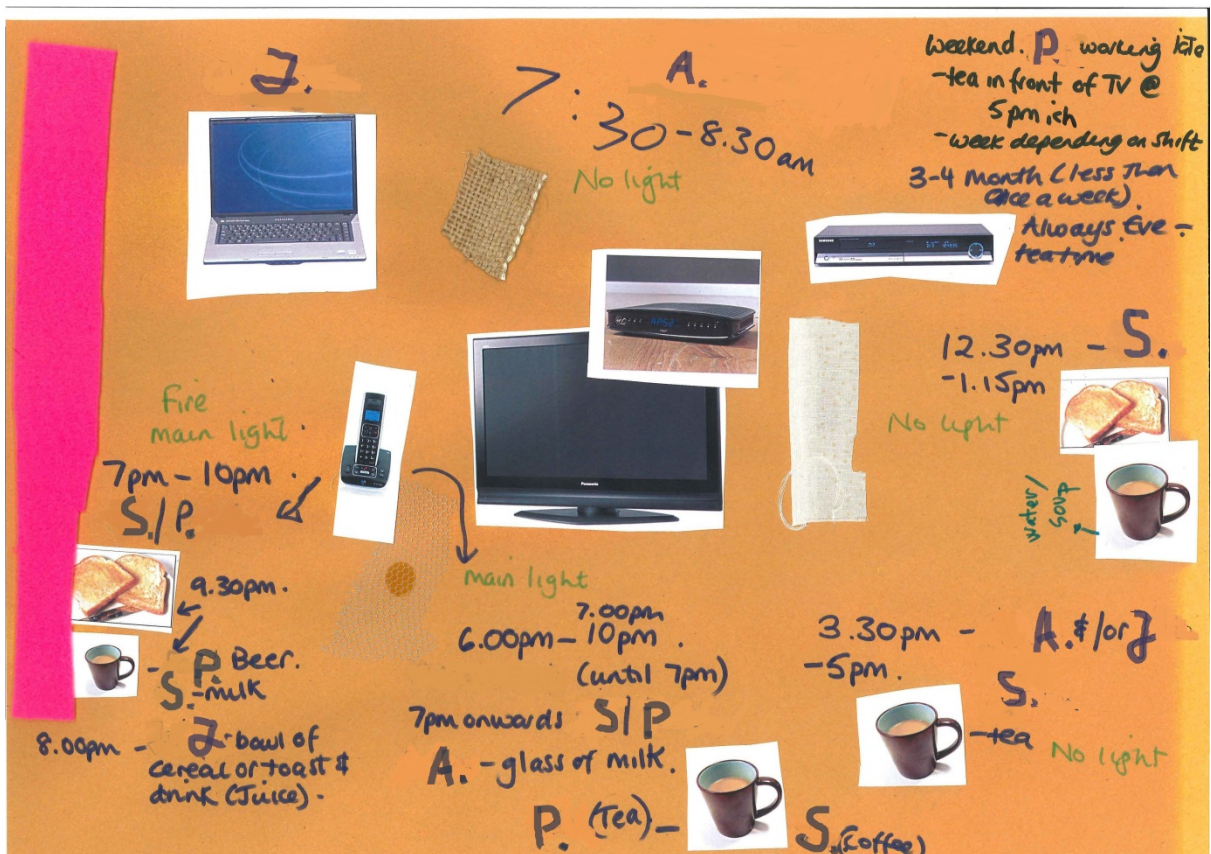 J.
A.
7:30-8.30am
No light
Weekend. P. working late
-tea in front of TV @
5pm ish
-week depending on shift
3-4 month (less than
once a week).
Always Eve -
teatime
SAMSUNG
12.30pm - S.
-1.15pm
No light
water/
soup
Fire
main light.
7pm - 10pm.
S./P.
9.30pm.
- P. Beer.
S. -milk
8.00pm - J-bowl of
cereal or toast &
drink (Juice).
Panasonic
main light
7.00pm
6.00pm - 10pm.
(until 7pm)
7pm onwards S/P
A. -glass of milk.
P. (Tea) - S. (Coffee)
3.30pm - A. &/or J
-5pm.
S.
-tea
No light